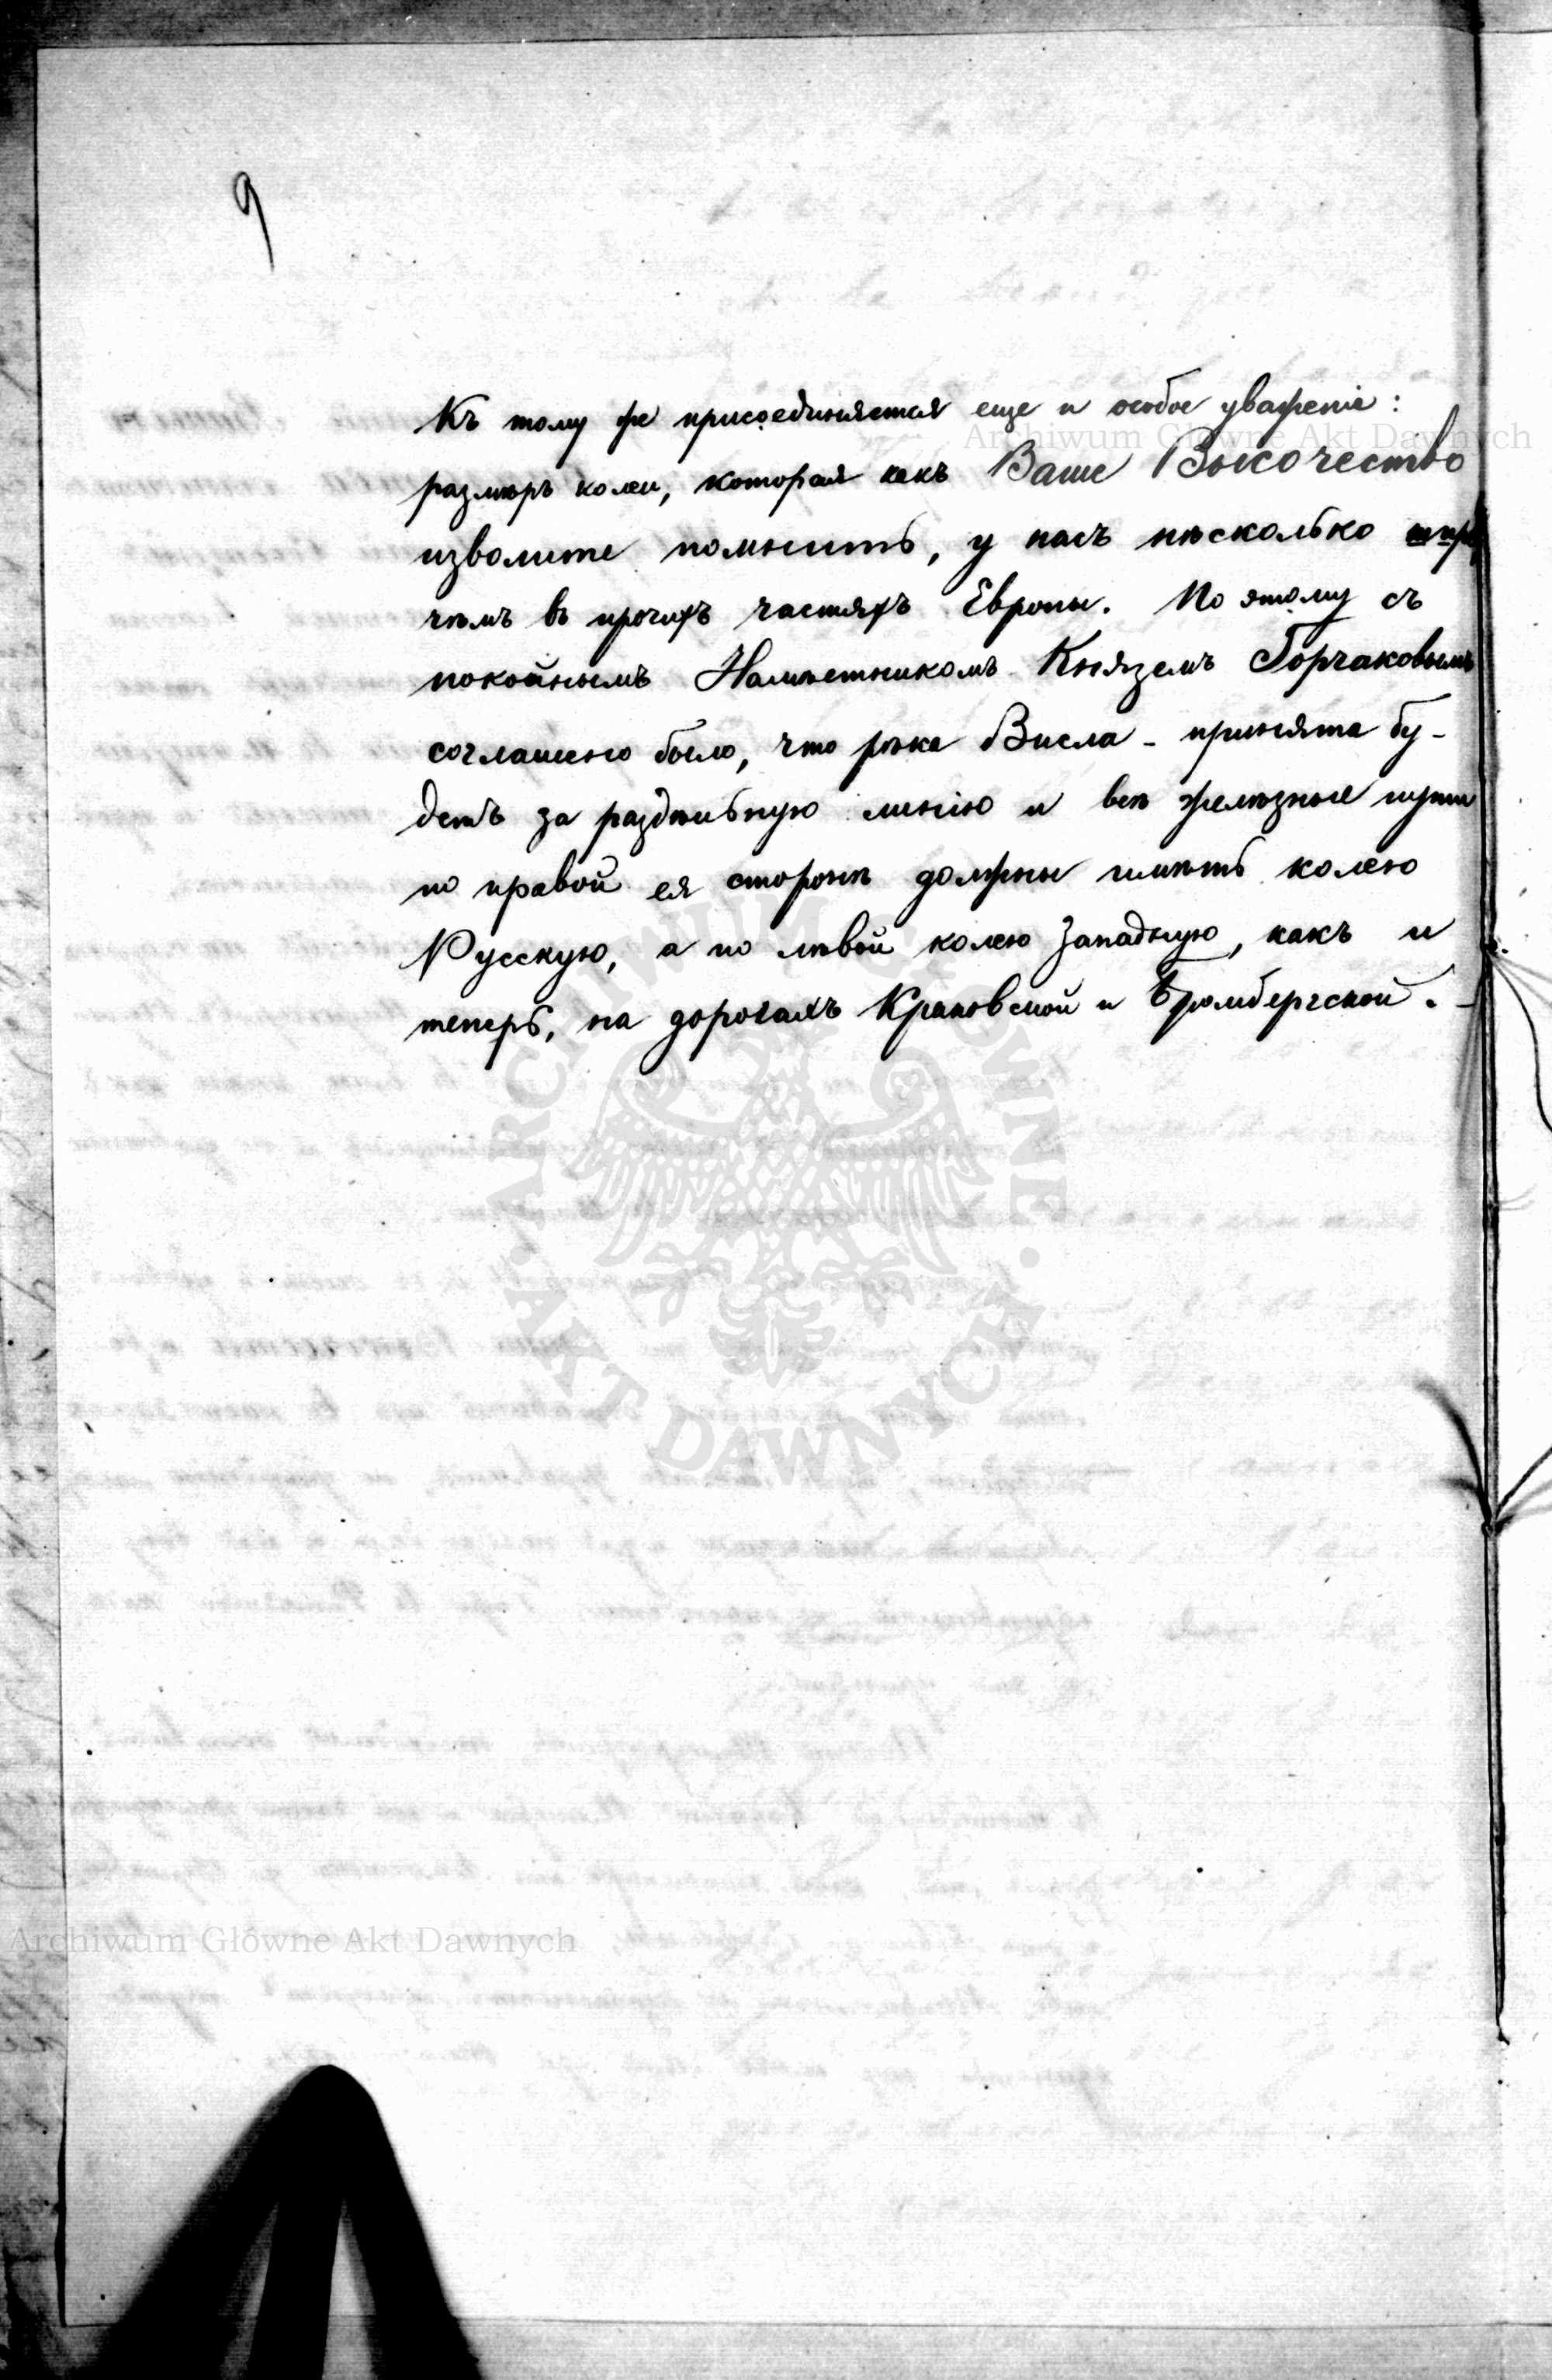 9
Къ тому же присоединяется еще и особое уваженіе:
размѣръ колеи, которая какъ Ваше Высочество
изволите помнить, у насъ нѣсколько шире
чѣмъ въ прочихъ частяхъ Европы. По этому съ
покойнымъ Намѣстникомъ Княземъ Горчаковымъ
соглашено было, что рѣка Висла - принята бу-
детъ за раздѣльную линію и всѣ желѣзные пути
по правой ея сторонѣ должны имѣть колею
Русскую, а по лѣвой колею Западную, какъ и
теперь, на дорогахъ Краковской и Бромбергской. -
Archiwum Główne Akt Dawnych
ARCHIWUM GŁÓWNE · AKT DAWNYCH ·
Archiwum Główne Akt Dawnych